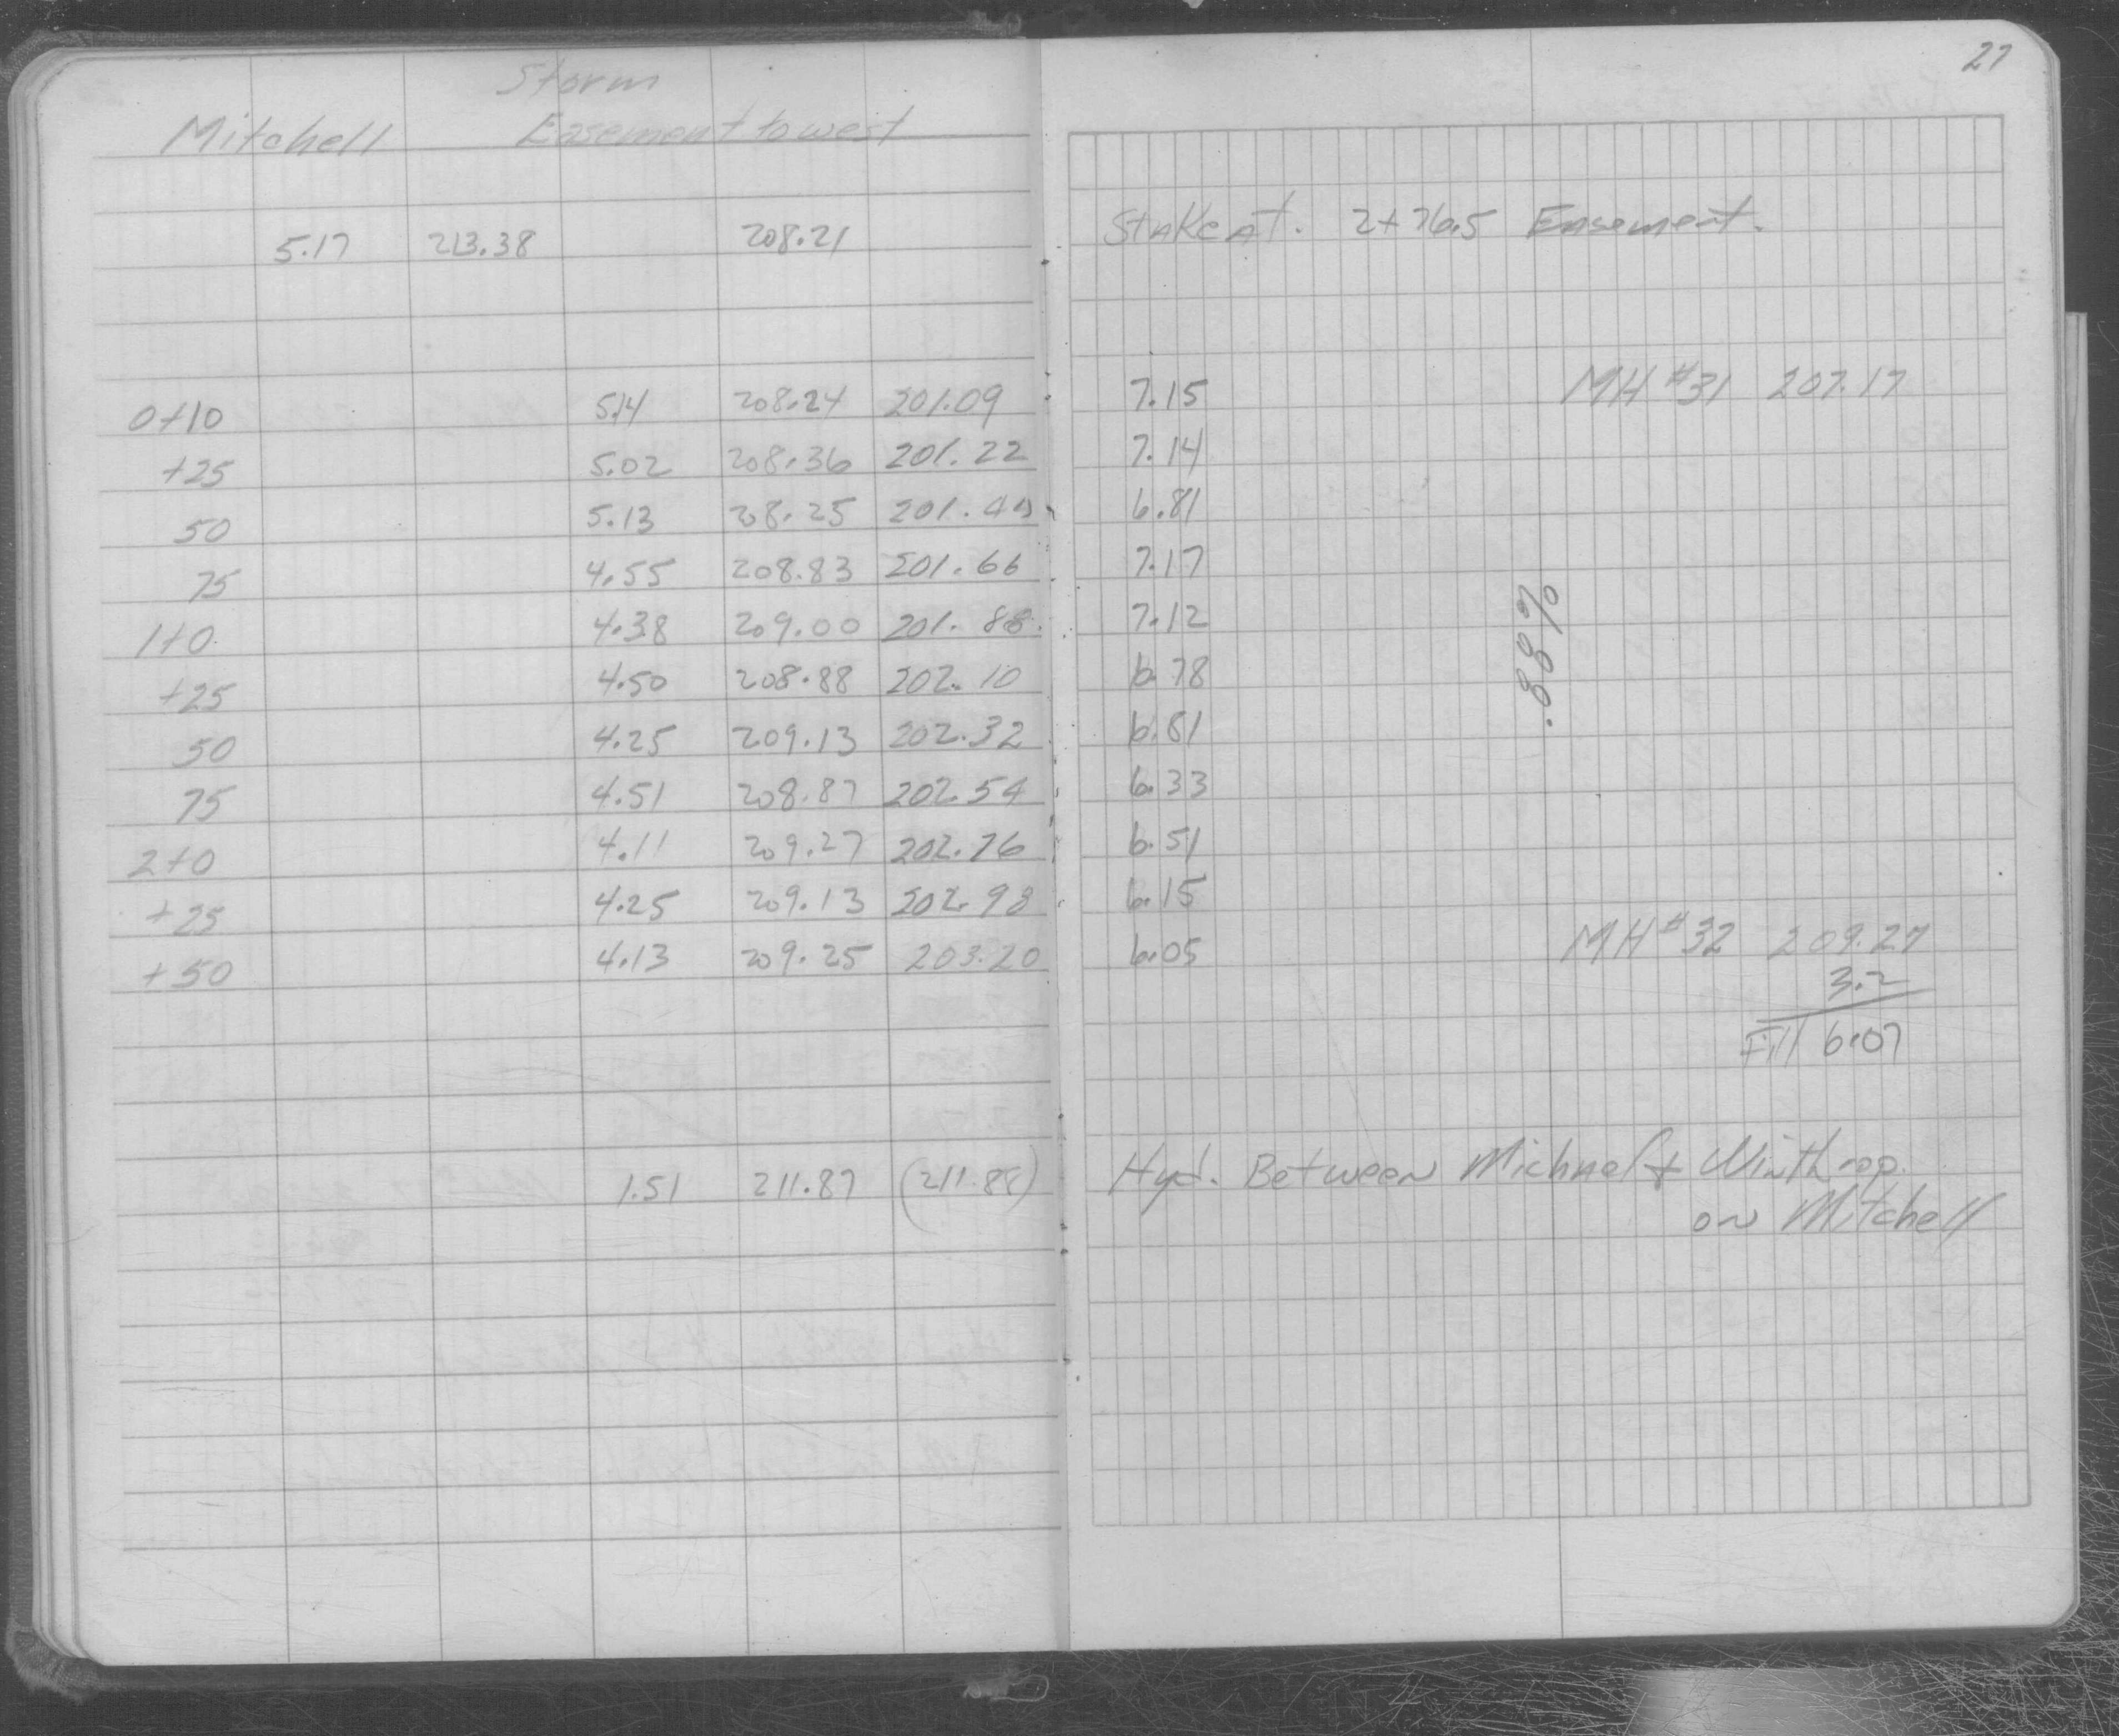 27
Storm
Mitchell Easement to west
5.17 213.38 208.21 Stake at. 2+76.5 Easement.
0+10 5.14 208.24 201.09 7.15 MH #31 207.17
+25 5.02 208.36 201.22 7.14
50 5.13 208.25 201.44 6.81
75 4.55 208.83 201.66 7.17
1+0 4.38 209.00 201.88 7.12
.88%
+25 4.50 208.88 202.10 6.78
50 4.25 209.13 202.32 6.81
75 4.51 208.87 202.54 6.33
2+0 4.11 209.27 202.76 6.51
+25 4.25 209.13 202.98 6.15
+50 4.13 209.25 203.20 6.05 MH #32 209.27
3.2
Fill 6.07
1.51 211.87 (211.88) Hyd. Between Michael & Winthrop.
on Mitchell